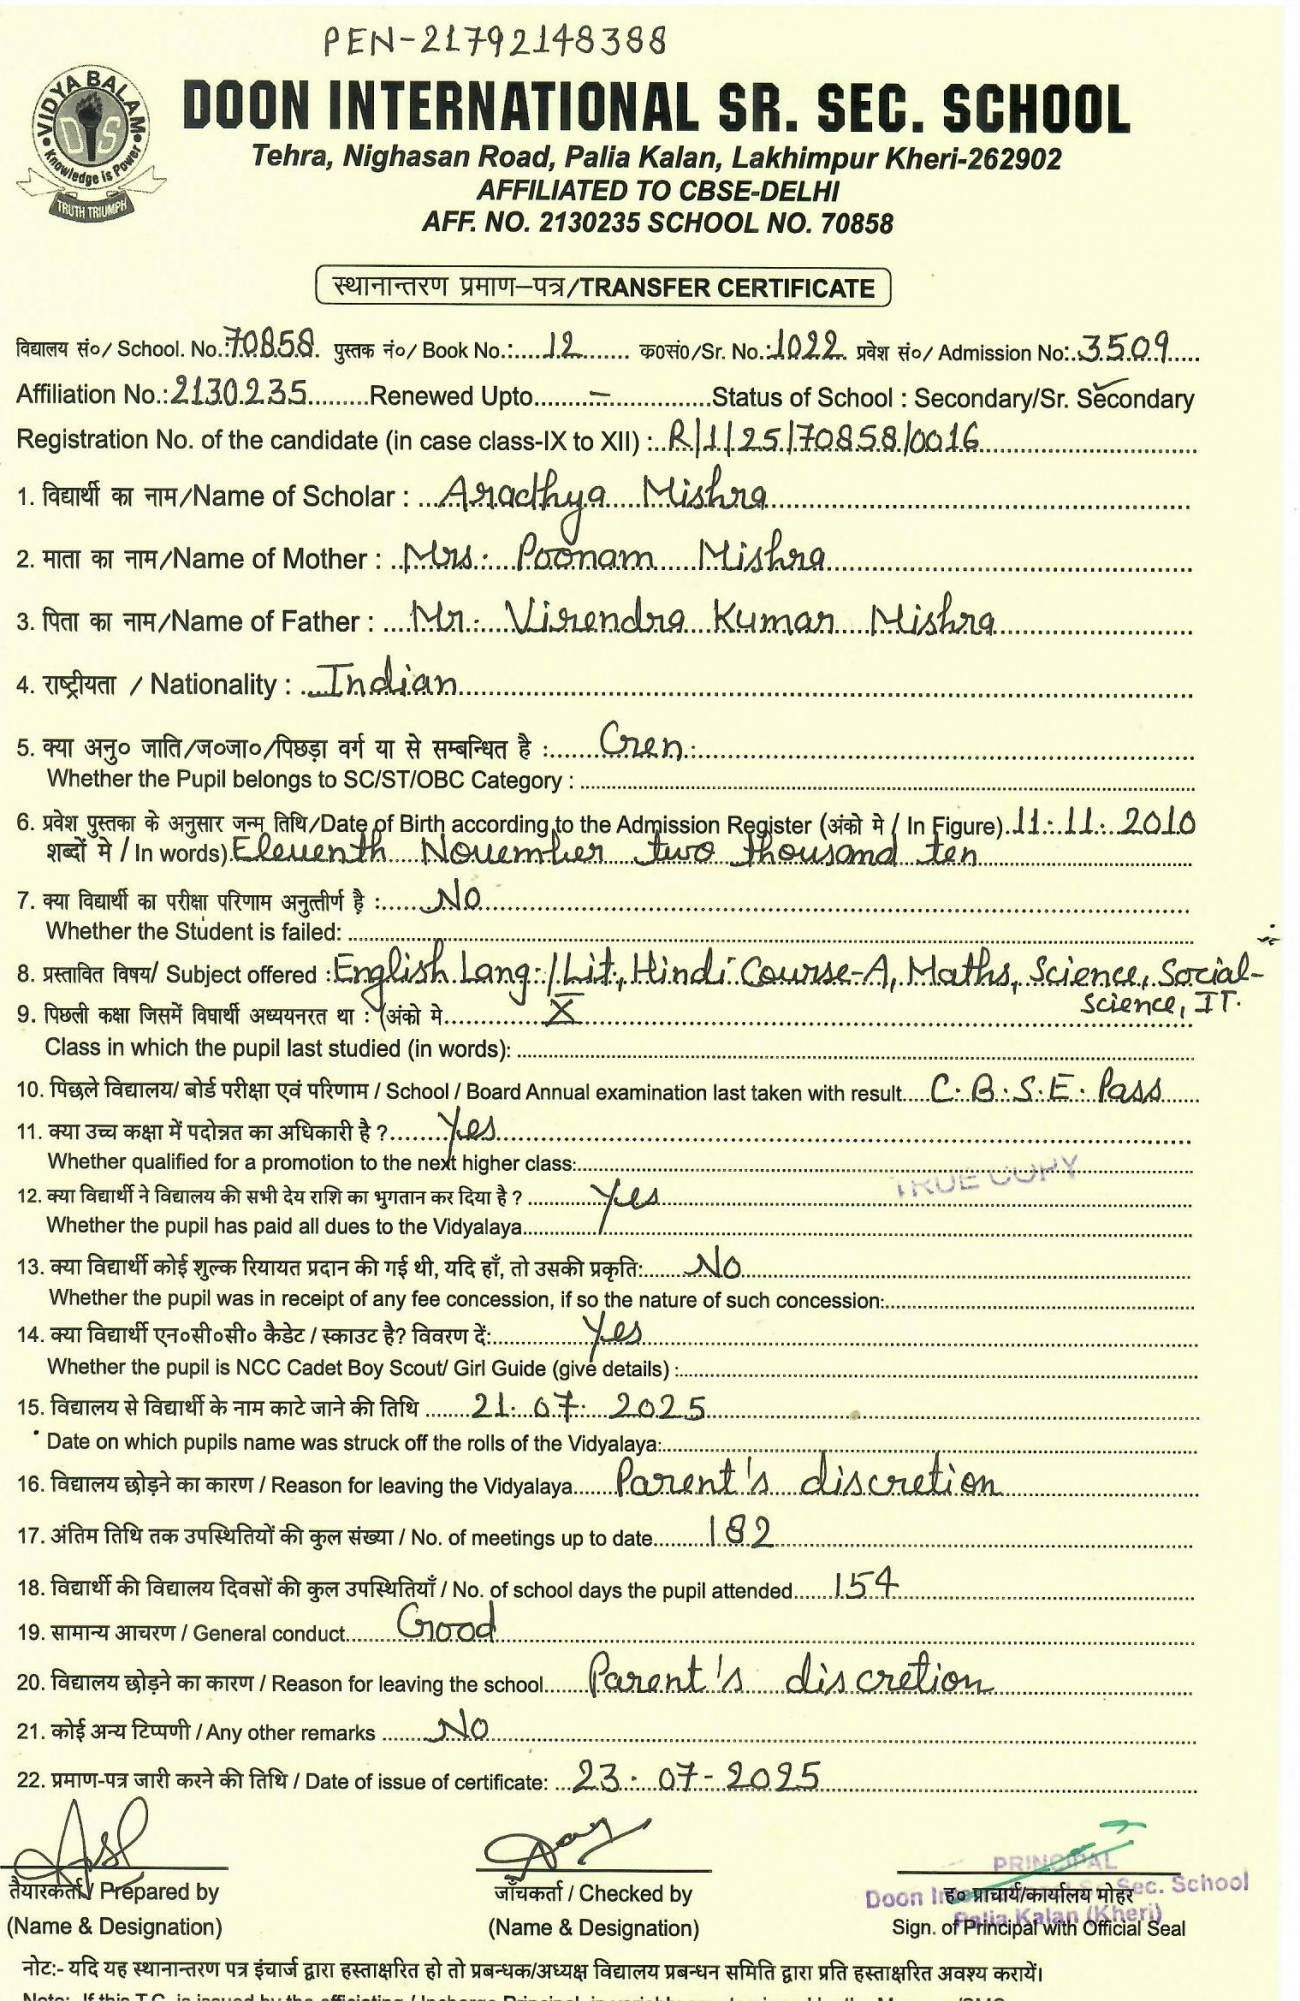 PEN-21792148388
VIDYA BALAM
DIS
Knowledge is Power
TRUTH TRIUMPH
DOON INTERNATIONAL SR. SEC. SCHOOL
Tehra, Nighasan Road, Palia Kalan, Lakhimpur Kheri-262902
AFFILIATED TO CBSE-DELHI
AFF. NO. 2130235 SCHOOL NO. 70858
स्थानान्तरण प्रमाण–पत्र/TRANSFER CERTIFICATE
विद्यालय सं०/ School. No.:70858. पुस्तक नं०/ Book No.:....12........ क०सं०/Sr. No.:1022. प्रवेश सं०/ Admission No:..3509.....
Affiliation No.:2130235.........Renewed Upto.......–............Status of School : Secondary/Sr. Secondary
Registration No. of the candidate (in case class-IX to XII) :..R/1/25/70858/0016
1. विद्यार्थी का नाम/Name of Scholar : Aradhya Mishra
2. माता का नाम/Name of Mother : Mrs. Poonam Mishra
3. पिता का नाम/Name of Father : Mr. Virendra Kumar Mishra
4. राष्ट्रीयता / Nationality : Indian
5. क्या अनु० जाति/ज०जा०/पिछड़ा वर्ग या से सम्बन्धित है : Gen.
Whether the Pupil belongs to SC/ST/OBC Category :
6. प्रवेश पुस्तका के अनुसार जन्म तिथि/Date of Birth according to the Admission Register (अंको मे / In Figure). 11.11.2010
शब्दों मे / In words). Eleventh November two thousand ten
7. क्या विद्यार्थी का परीक्षा परिणाम अनुत्तीर्ण है : No
Whether the Student is failed:
8. प्रस्तावित विषय/ Subject offered : English Lang./Lit., Hindi Course-A, Maths, Science, Social-
Science, IT.
9. पिछली कक्षा जिसमें विद्यार्थी अध्ययनरत था : (अंको मे X
Class in which the pupil last studied (in words):
10. पिछले विद्यालय/ बोर्ड परीक्षा एवं परिणाम / School / Board Annual examination last taken with result C.B.S.E. Pass
11. क्या उच्च कक्षा में पदोन्नत का अधिकारी है ? Yes
Whether qualified for a promotion to the next higher class:
TRUE COPY
12. क्या विद्यार्थी ने विद्यालय की सभी देय राशि का भुगतान कर दिया है ? Yes
Whether the pupil has paid all dues to the Vidyalaya
13. क्या विद्यार्थी कोई शुल्क रियायत प्रदान की गई थी, यदि हाँ, तो उसकी प्रकृति: No
Whether the pupil was in receipt of any fee concession, if so the nature of such concession:
14. क्या विद्यार्थी एन०सी०सी० कैडेट / स्काउट है? विवरण दें: Yes
Whether the pupil is NCC Cadet Boy Scout/ Girl Guide (give details) :
15. विद्यालय से विद्यार्थी के नाम काटे जाने की तिथि 21.07.2025
Date on which pupils name was struck off the rolls of the Vidyalaya:
16. विद्यालय छोड़ने का कारण / Reason for leaving the Vidyalaya Parent's discretion
17. अंतिम तिथि तक उपस्थितियों की कुल संख्या / No. of meetings up to date 182
18. विद्यार्थी की विद्यालय दिवसों की कुल उपस्थितियाँ / No. of school days the pupil attended 154
19. सामान्य आचरण / General conduct Good
20. विद्यालय छोड़ने का कारण / Reason for leaving the school Parent's discretion
21. कोई अन्य टिप्पणी / Any other remarks No
22. प्रमाण-पत्र जारी करने की तिथि / Date of issue of certificate: 23.07-2025
PRINCIPAL
Doon Sr. Sec. School
Palia Kalan (Kheri)
तैयारकर्ता / Prepared by जाँचकर्ता / Checked by ह० प्राचार्य/कार्यालय मोहर
(Name & Designation) (Name & Designation) Sign. of Principal with Official Seal
नोट:- यदि यह स्थानान्तरण पत्र इंचार्ज द्वारा हस्ताक्षरित हो तो प्रबन्धक/अध्यक्ष विद्यालय प्रबन्धन समिति द्वारा प्रति हस्ताक्षरित अवश्य करायें।